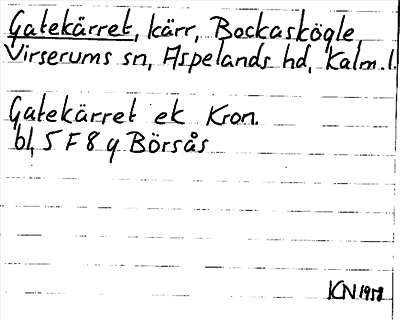 Gatekärret, kärr, Bockaskögle
Virserums sn, Aspelands hd, Kalm. l.
Gatekärret ek Kron.
bl, 5 F 8 g Börsås
KN 1958